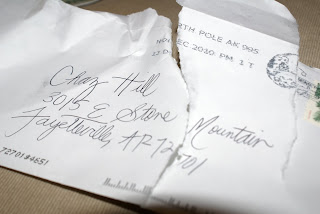 NORTH POLE AK 995
DEC 2010 PM 1 T
Chaz Hill
3015 E Stone Mountain
Fayetteville, AR 72701
7270184651